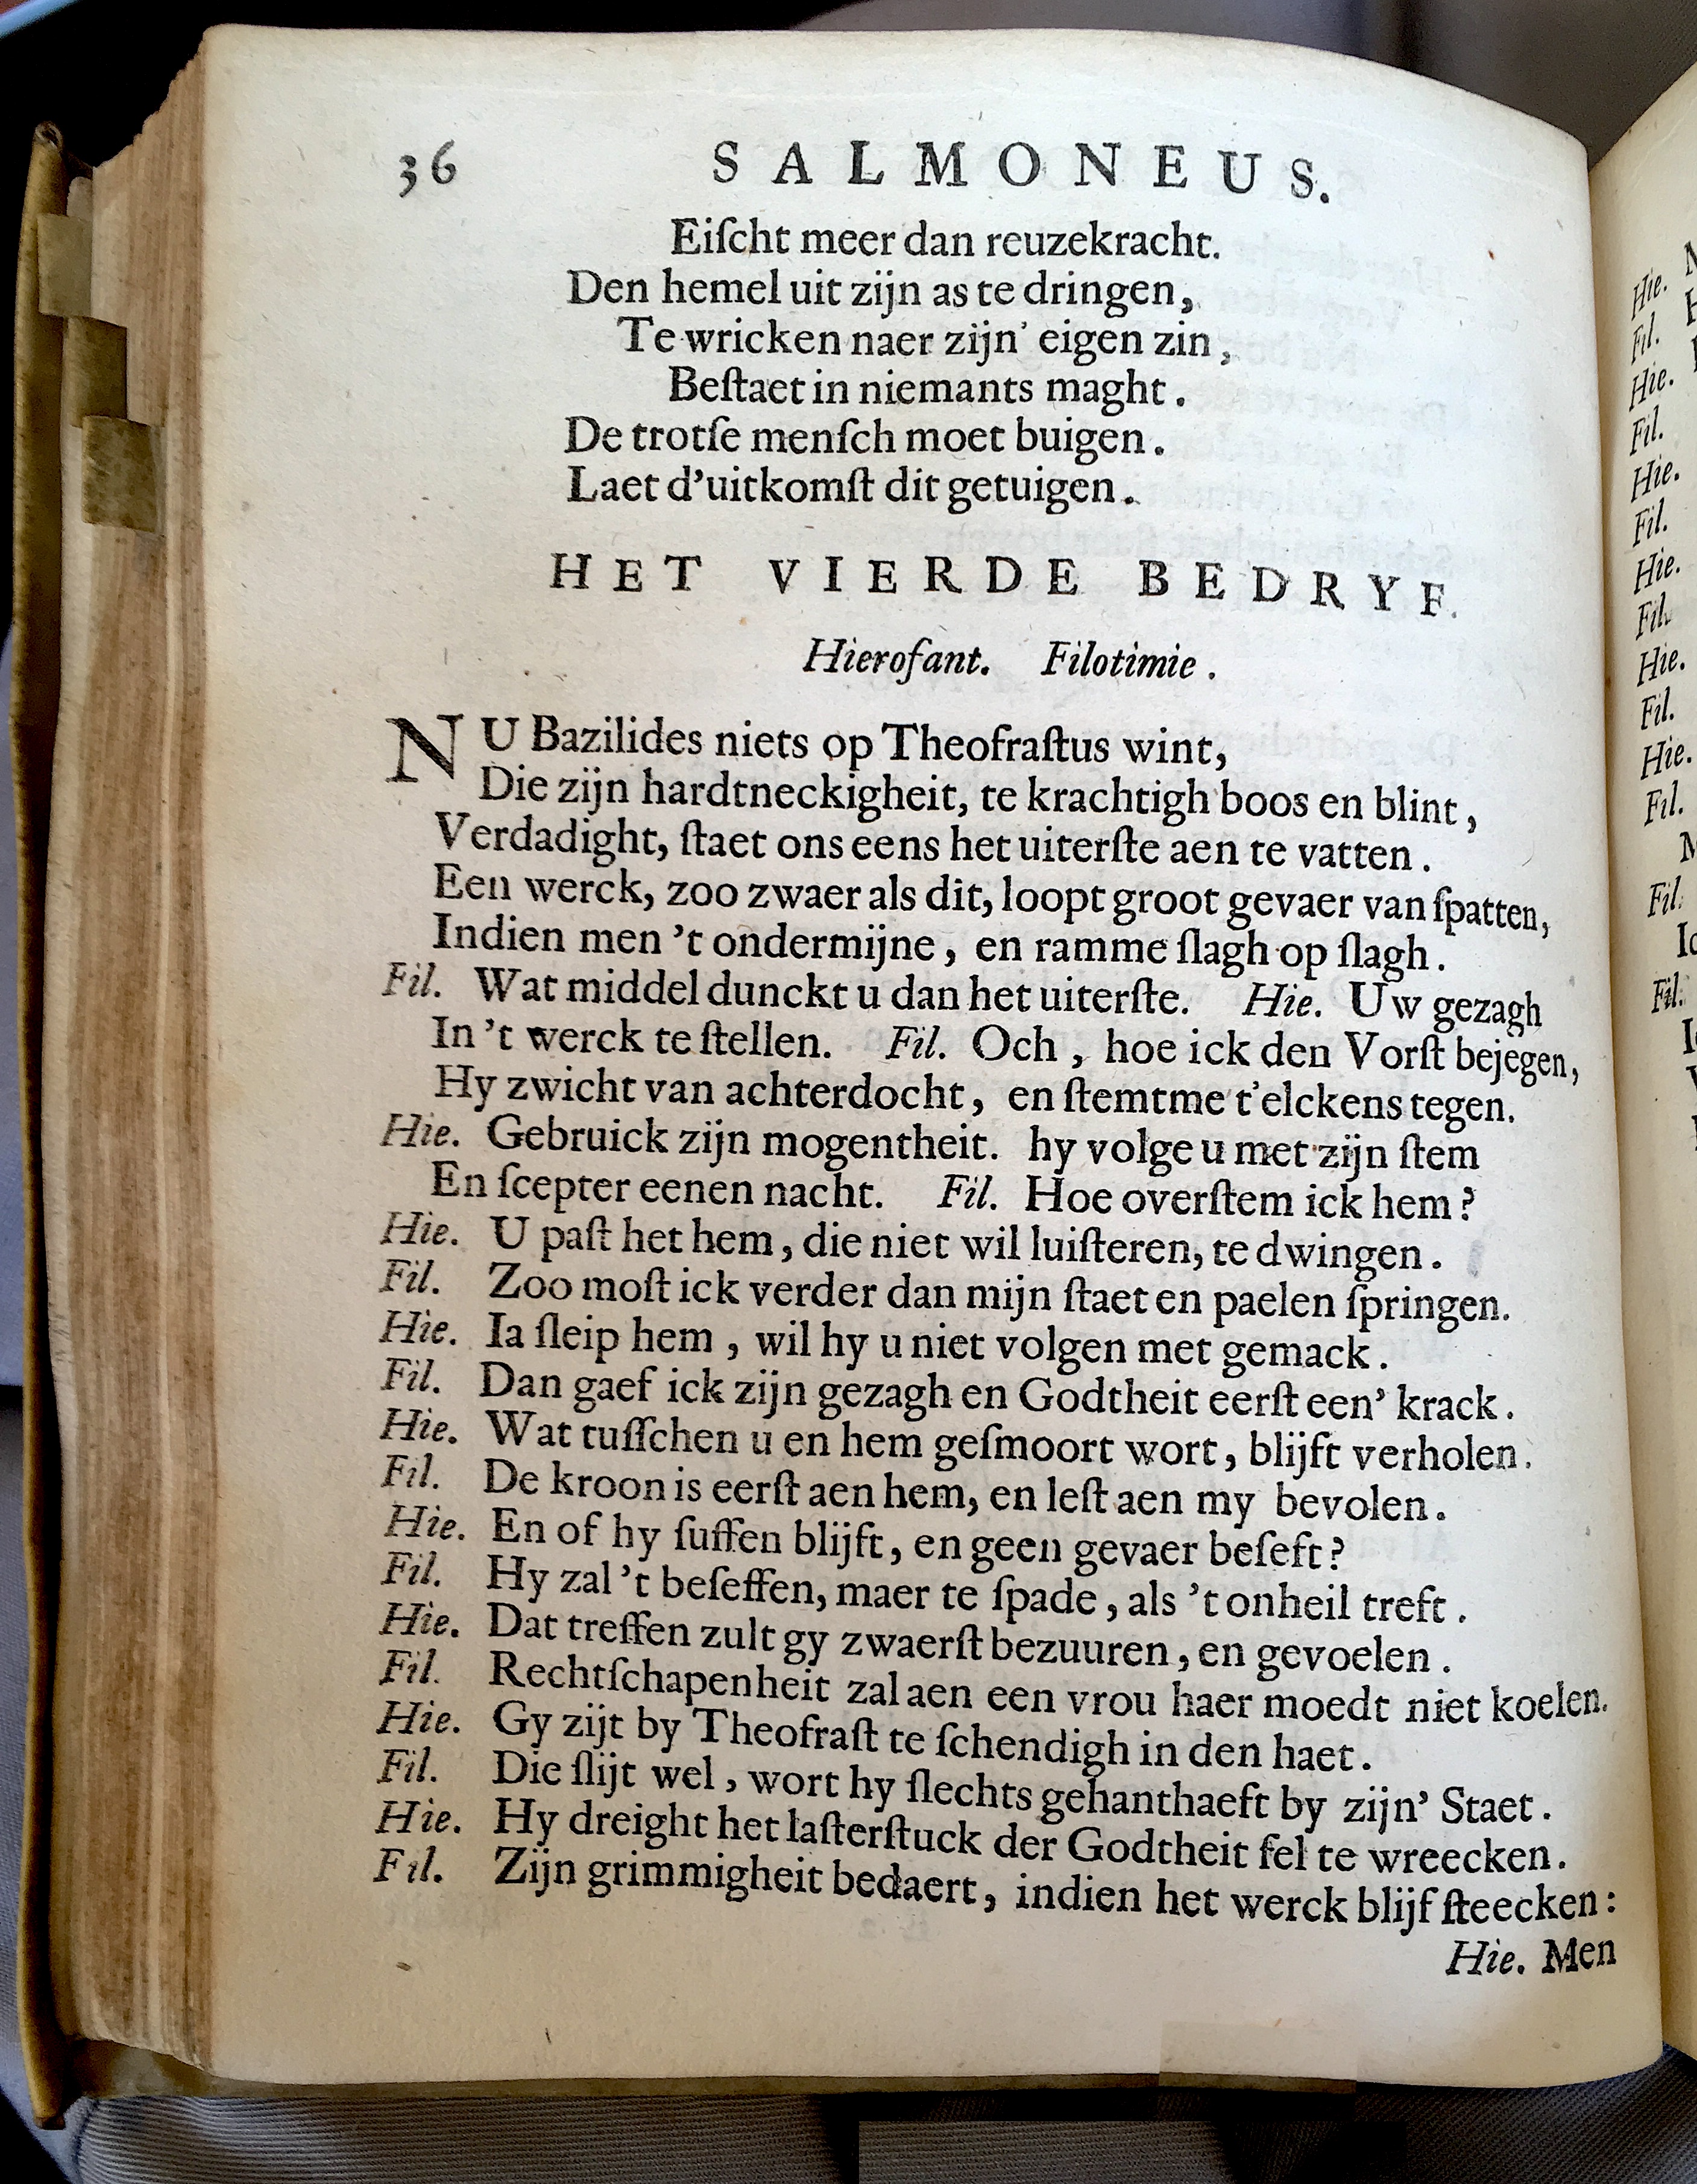 36 SALMONEUS.
Eiſcht meer dan reuzekracht.
Den hemel uit zijn as te dringen,
Te wricken naer zijn' eigen zin,
Beſtaet in niemants maght.
De trotſe menſch moet buigen.
Laet d'uitkomſt dit getuigen.
HET VIERDE BEDRYF.
Hierofant. Filotimie.
NU Bazilides niets op Theofraſtus wint,
Die zijn hardtneckigheit, te krachtigh boos en blint,
Verdadight, ſtaet ons eens het uiterſte aen te vatten.
Een werck, zoo zwaer als dit, loopt groot gevaer van ſpatten,
Indien men 't ondermijne, en ramme ſlagh op ſlagh.
Fil. Wat middel dunckt u dan het uiterſte. Hie. Uw gezagh
In 't werck te ſtellen. Fil. Och, hoe ick den Vorſt bejegen,
Hy zwicht van achterdocht, en ſtemtme t'elckens tegen.
Hie. Gebruick zijn mogentheit. hy volge u met zijn ſtem
En ſcepter eenen nacht. Fil. Hoe overſtem ick hem?
Hie. U paſt het hem, die niet wil luiſteren, te dwingen.
Fil. Zoo moſt ick verder dan mijn ſtaet en paelen ſpringen.
Hie. Ia ſleip hem, wil hy u niet volgen met gemack.
Fil. Dan gaef ick zijn gezagh en Godtheit eerſt een' krack.
Hie. Wat tuſſchen u en hem geſmoort wort, blijft verholen.
Fil. De kroon is eerſt aen hem, en leſt aen my bevolen.
Hie. En of hy ſuffen blijft, en geen gevaer beſeft?
Fil. Hy zal 't beſeffen, maer te ſpade, als 't onheil treft.
Hie. Dat treffen zult gy zwaerſt bezuuren, en gevoelen.
Fil. Rechtſchapenheit zal aen een vrou haer moedt niet koelen.
Hie. Gy zijt by Theofraſt te ſchendigh in den haet.
Fil. Die ſlijt wel, wort hy ſlechts gehanthaeft by zijn' Staet.
Hie. Hy dreight het laſterſtuck der Godtheit fel te wreecken.
Fil. Zijn grimmigheit bedaert, indien het werck blijf ſteecken:
Hie. Men
Hie.
Fil.
Hie.
Fil.
Hie.
Fil.
Hie.
Fil.
Hie.
Fil.
Hie.
Fil.
Fil.
Fil.